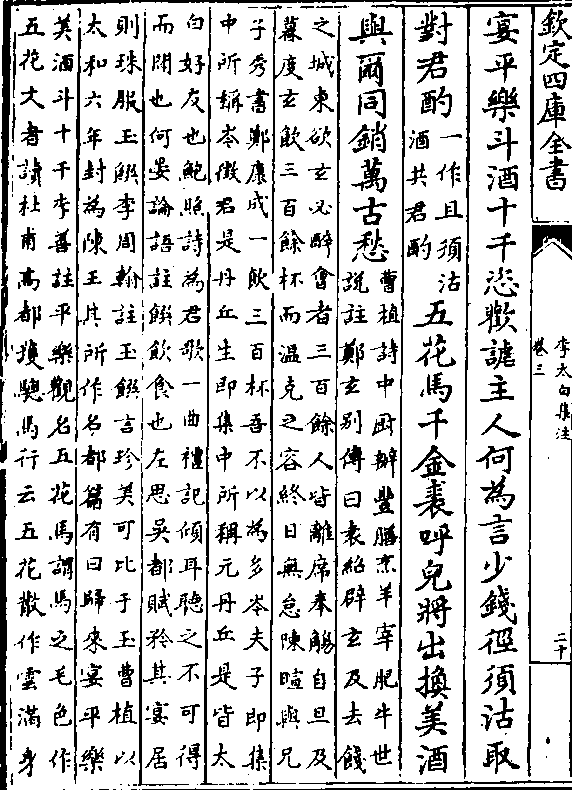 欽定四庫全書
李太白集注
卷三
二十
宴平樂斗酒十千恣歡謔主人何為言少錢徑須沽取
對君酌一作且須沽
酒共君酌五花馬千金裘呼兒將出換美酒
與爾同銷萬古愁曹植詩中厨辦豐膳烹羊宰肥牛世
說註鄭玄别傳曰袁紹辟玄及去餞
之城東欲玄必醉會者三百餘人皆離席奉觴自旦及
暮度玄飲三百餘杯而温克之容終日無怠陳暄與兄
子秀書鄭康成一飲三百杯吾不以為多岑夫子即集
中所稱岑徵君是丹丘生即集中所稱元丹丘是皆太
白好友也鮑照詩為君歌一曲禮記傾耳聽之不可得
而聞也何晏論語註饌飲食也左思吳都賦矜其宴居
則珠服玉饌李周翰註玉饌言珍美可比于玉曹植以
太和六年封為陳王其所作名都篇有曰歸來宴平樂
美酒斗十千李善註平樂觀名五花馬謂馬之毛色作
五花文者讀杜甫高都護驄馬行云五花散作雲滿身